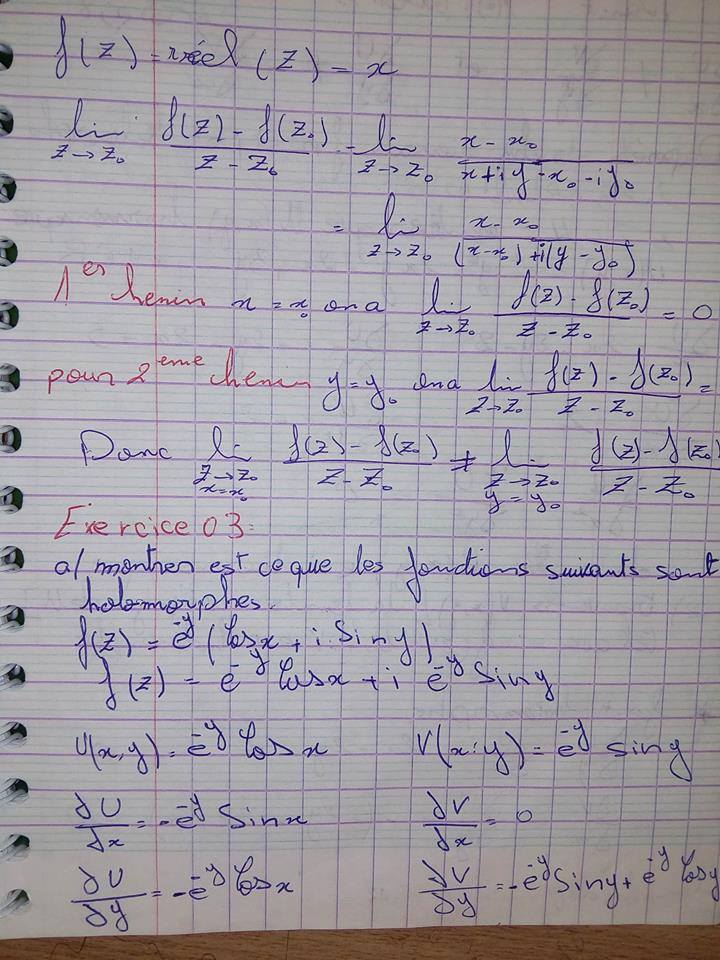 f(z) = réel (z) = x
lim z→z₀ (f(z) - f(z₀))/(z - z₀) = lim z→z₀ (x - x₀)/(x+iy - x₀ - iy₀)
= lim z→z₀ (x - x₀)/((x-x₀)+i(y - y₀))
1er hemin x = x₀ on a lim z→z₀ (f(z) - f(z₀))/(z - z₀) = 0
pour 2eme chemin y = y₀ on a lim z→z₀ (f(z) - f(z₀))/(z - z₀) =
Donc lim z→z₀ x=x₀ (f(z) - f(z₀))/(z - z₀) ≠ lim z→z₀ y=y₀ (f(z) - f(z₀))/(z - z₀)
Exercice 03:
a/ montrer est ce que les fonctions suivants sont
holomorphes.
f(z) = e^-y (Cos x + i Sin y)
f(z) = e^-y Cos x + i e^-y Sin y
U(x,y) = e^-y Cos x V(x,y) = e^-y sin y
∂U/∂x = -e^-y Sin x ∂V/∂x = 0
∂U/∂y = -e^-y Cos x ∂V/∂y = -e^-y Sin y + e^-y Cos y